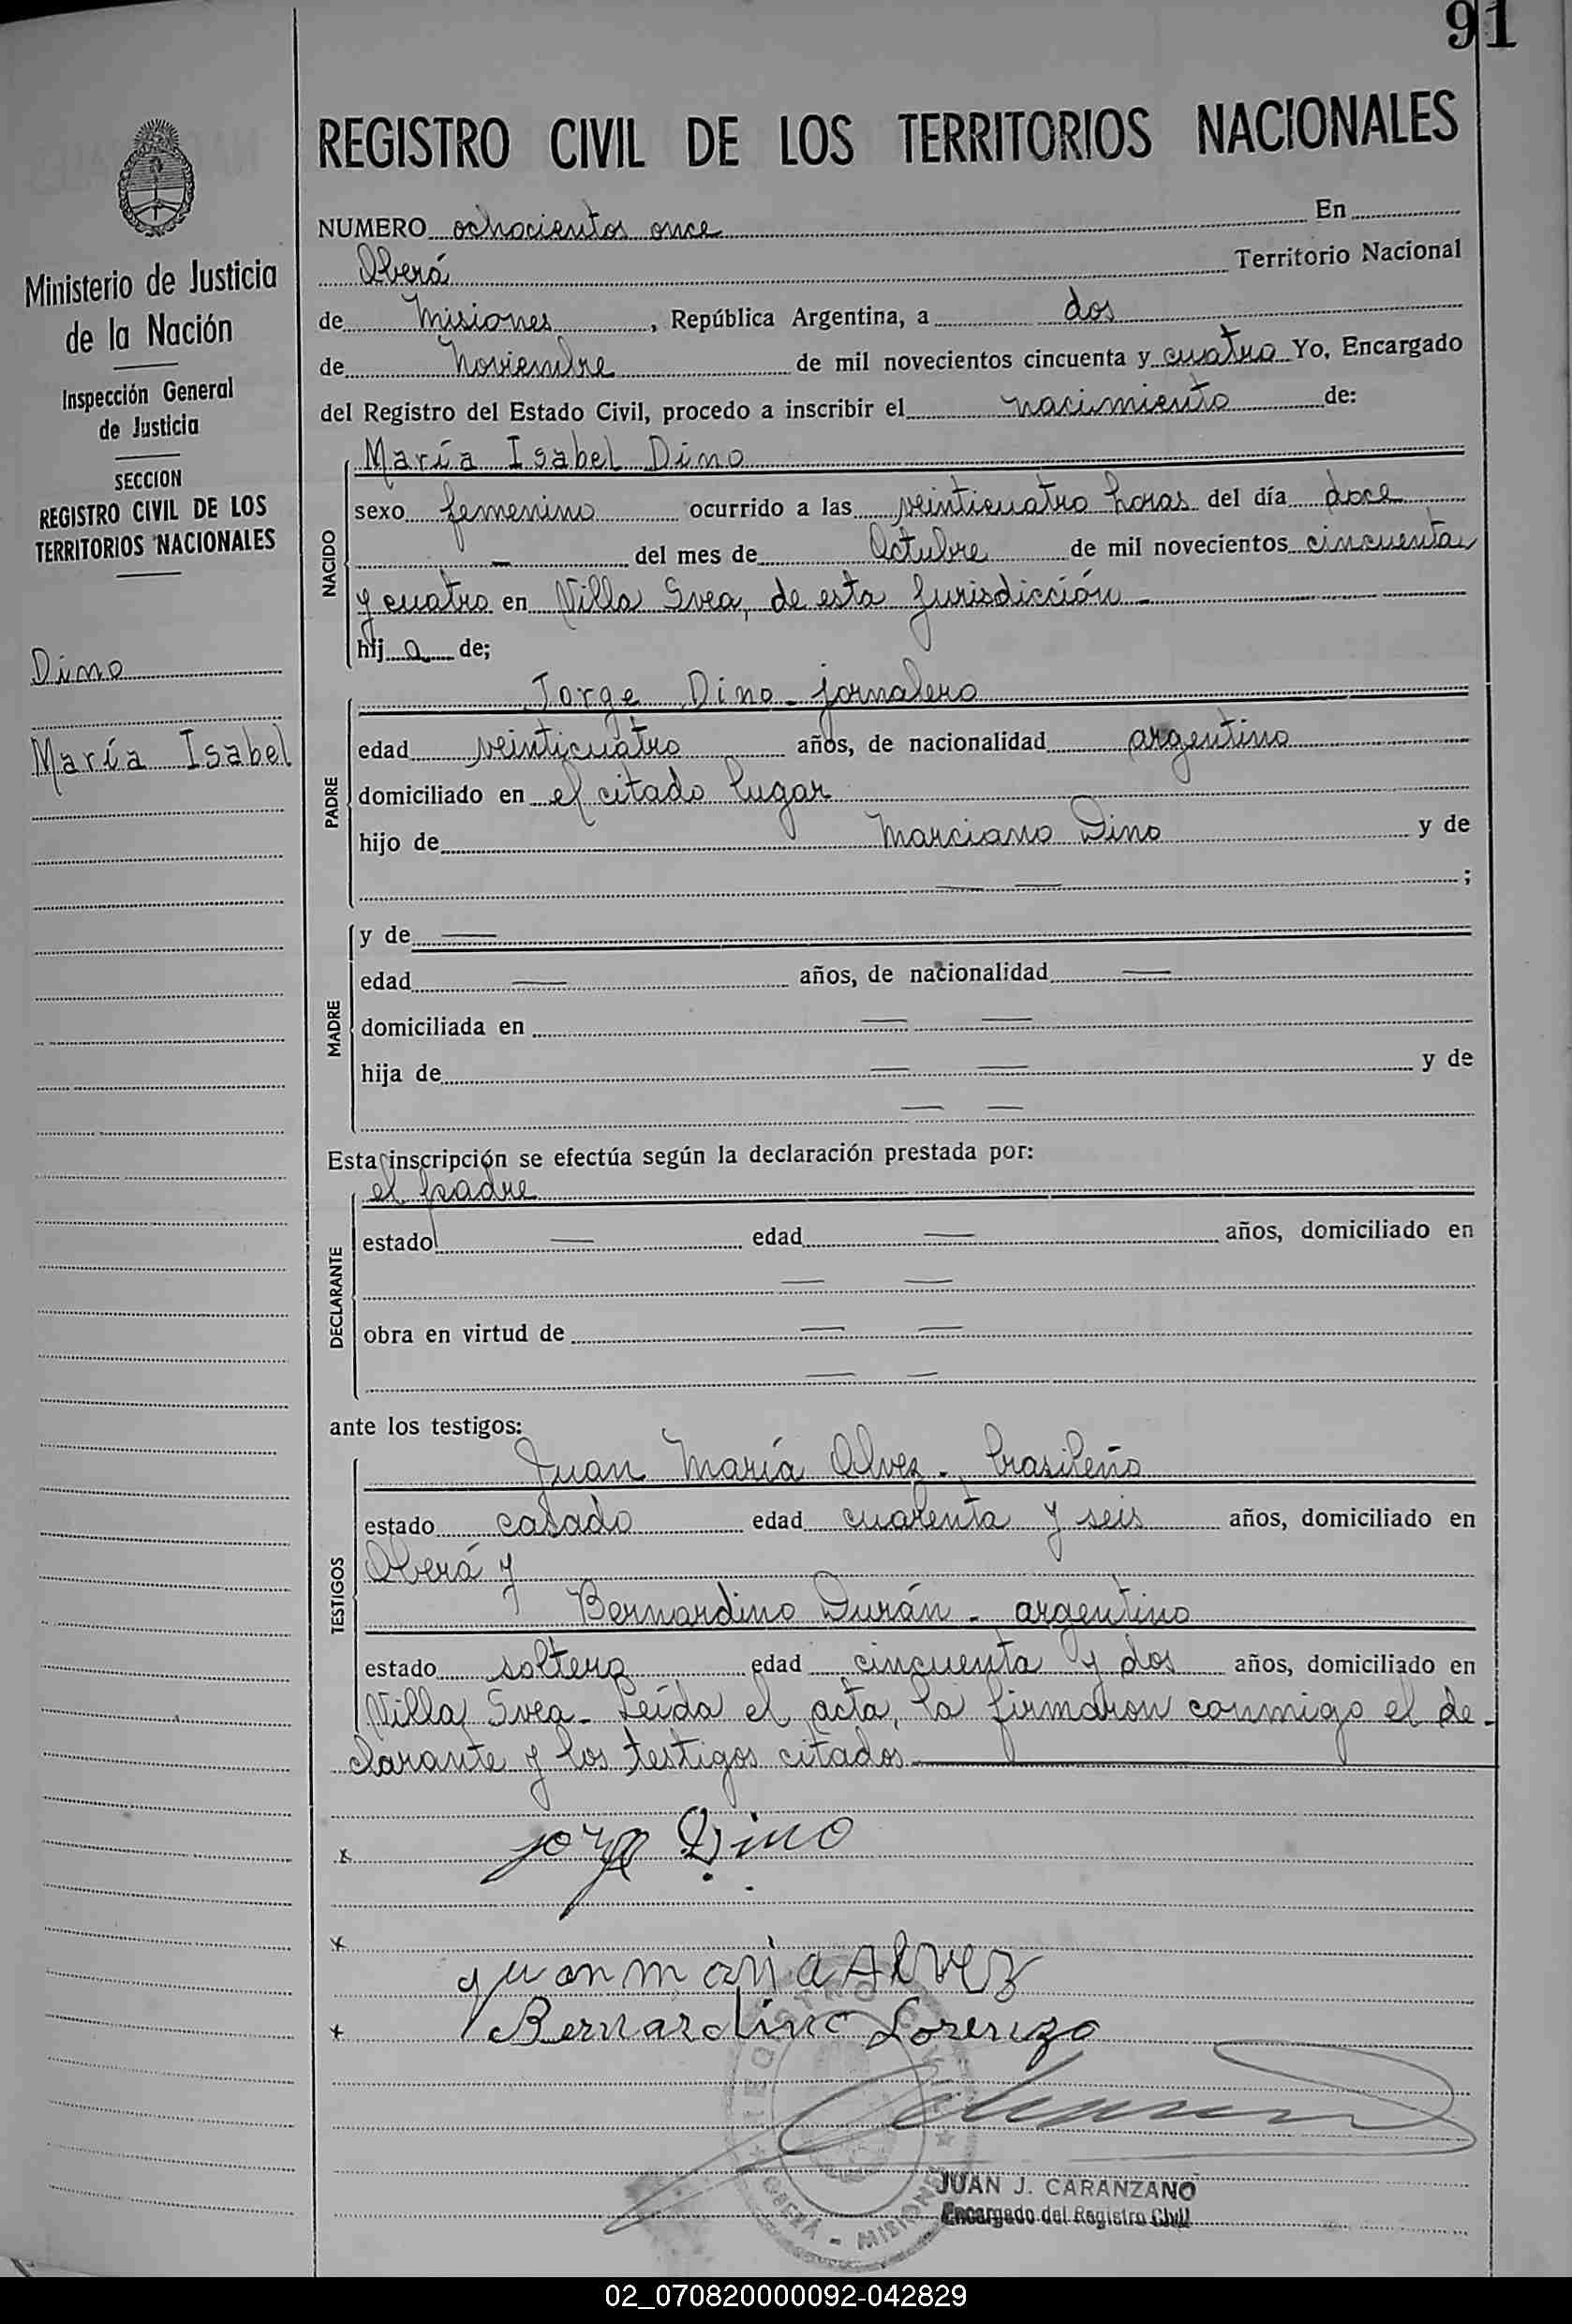 91
REGISTRO CIVIL DE LOS TERRITORIOS NACIONALES
Ministerio de Justicia
de la Nación
Inspección General
de Justicia
SECCION
REGISTRO CIVIL DE LOS
TERRITORIOS NACIONALES
Dino
María Isabel
NUMERO ochocientos once En
Oberá Territorio Nacional
de Misiones, República Argentina, a dos
de Noviembre de mil novecientos cincuenta y cuatro Yo, Encargado
del Registro del Estado Civil, procedo a inscribir el nacimiento de:
NACIDO
María Isabel Dino
sexo femenino ocurrido a las veinticuatro horas del día doce
- del mes de Octubre de mil novecientos cincuenta
y cuatro en Villa Svea, de esta Jurisdicción -
hij a de;
PADRE
Jorge Dino - jornalero
edad veinticuatro años, de nacionalidad argentino
domiciliado en el citado lugar
hijo de Marciano Dino y de
— — ;
MADRE
y de —
edad — años, de nacionalidad —
domiciliada en — —
hija de — — y de
— —
Esta inscripción se efectúa según la declaración prestada por:
DECLARANTE
el padre
estado — edad — años, domiciliado en
— —
obra en virtud de — —
— —
ante los testigos:
TESTIGOS
Juan María Alvez - brasileño
estado casado edad cuarenta y seis años, domiciliado en
Oberá y
Bernardino Durán - argentino
estado soltero edad cincuenta y dos años, domiciliado en
Villa Svea - Leída el acta, la firmaron conmigo el de-
clarante y los testigos citados
x Jorge Dino
x
Juan maria Alvez
x Bernardino Lorenzo
REGISTRO CIVIL
OBERÁ - MISIONES
JUAN J. CARANZANO
Encargado del Registro Civil
02_070820000092-042829